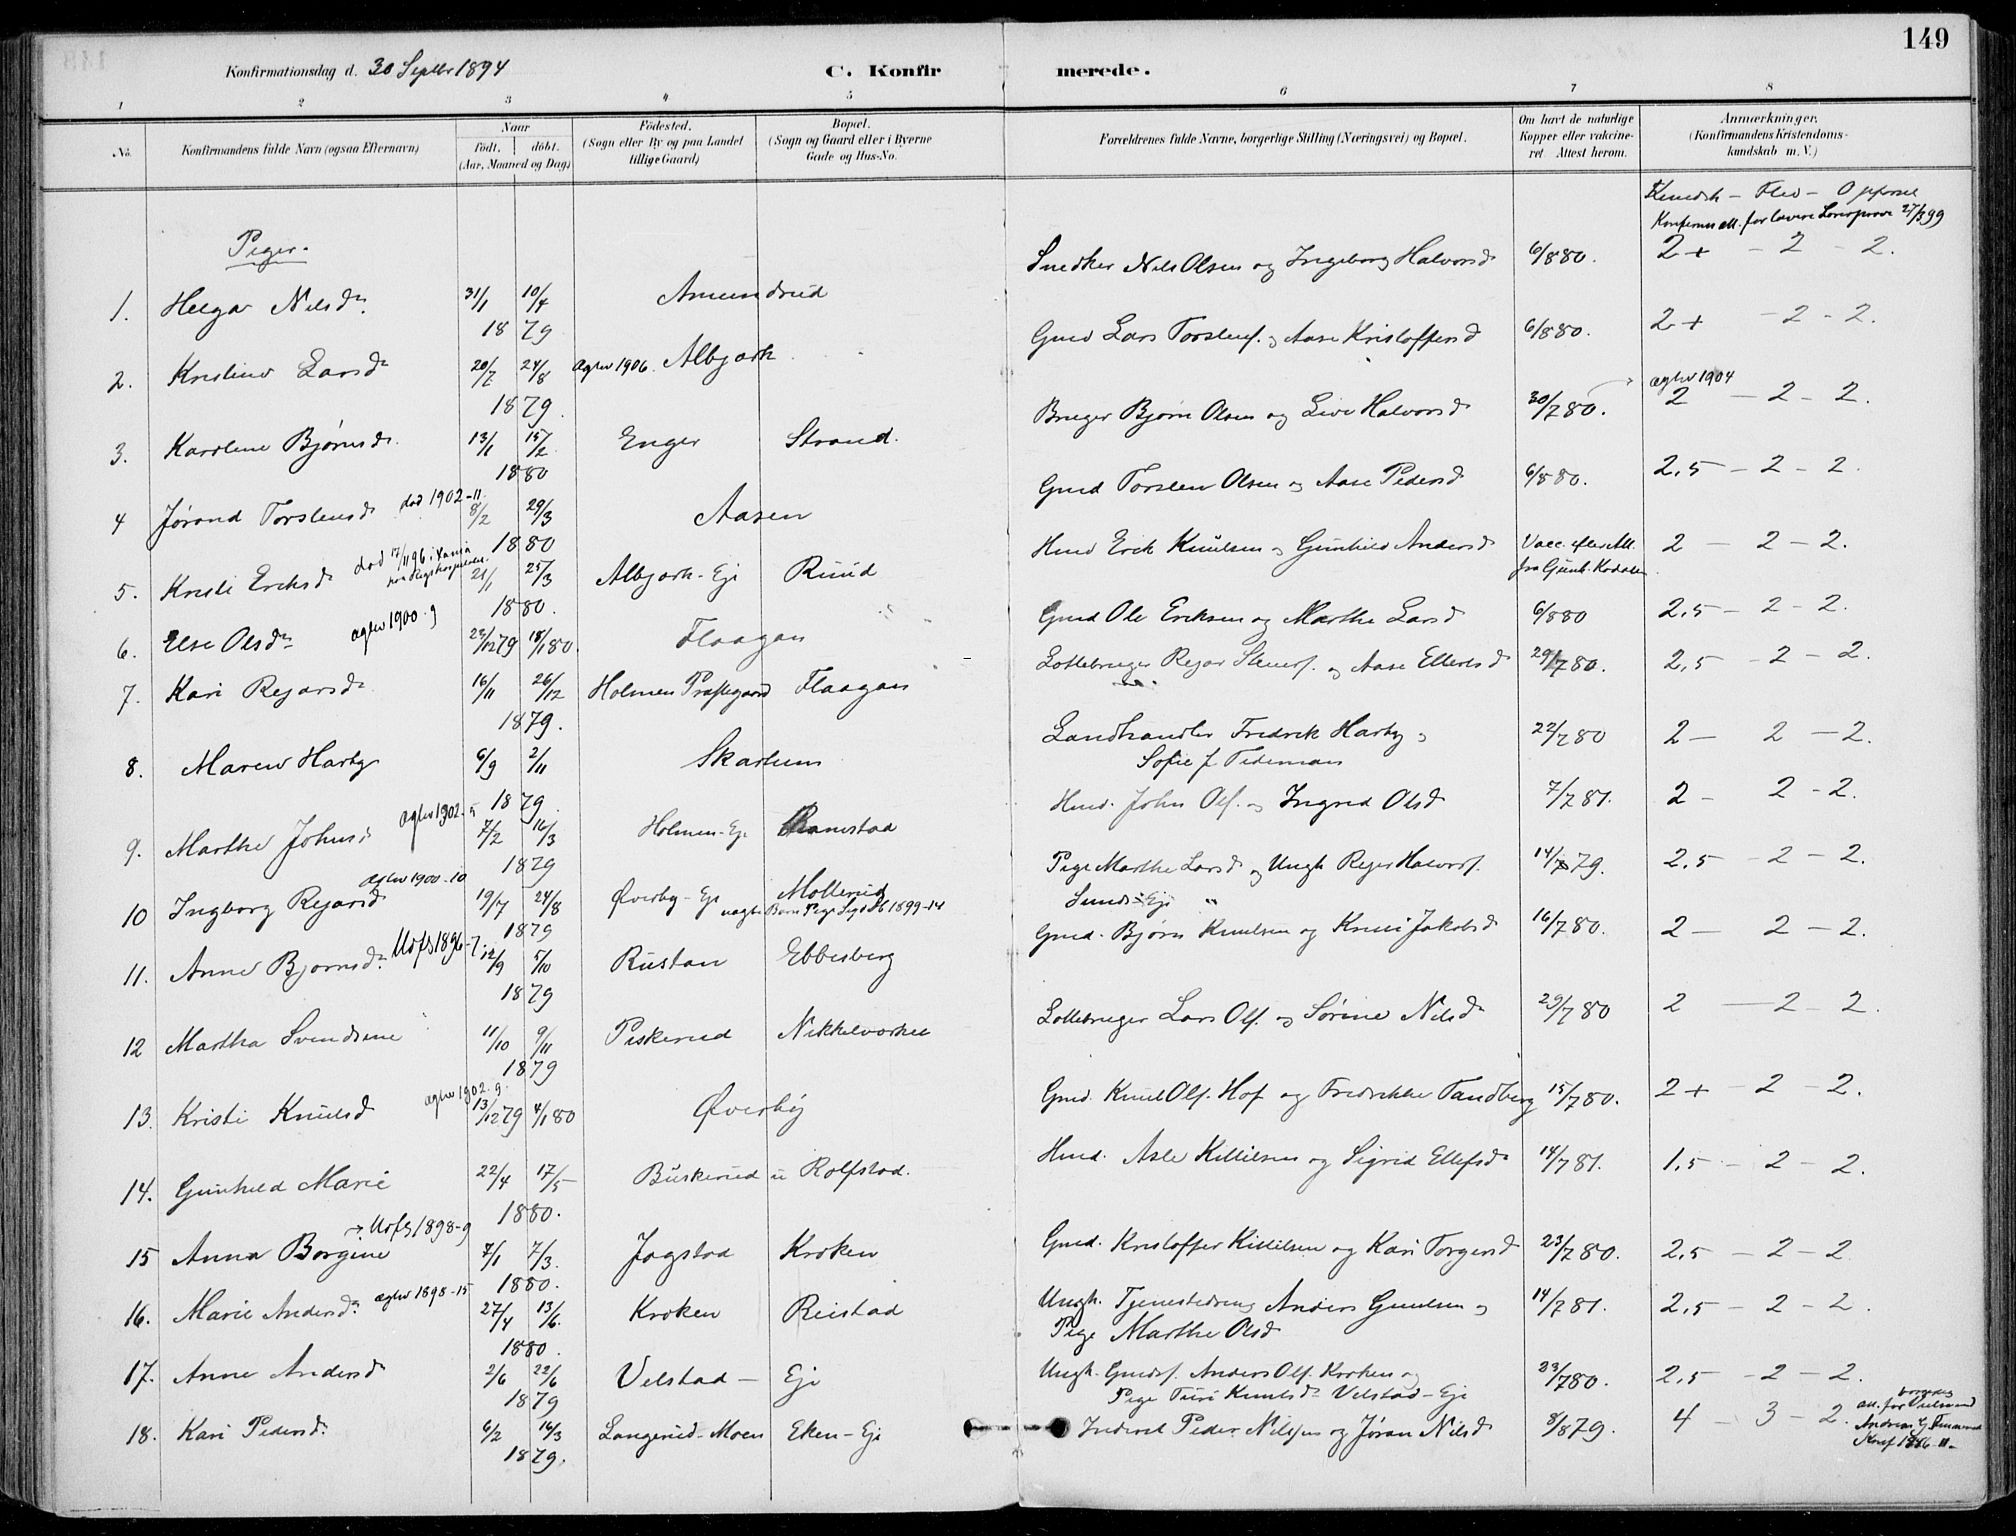 149
Konfirmationsdag d. 30 Septbr 1894
C. Konfirmerede.
1 2 3 4 5 6 7 8
No. Konfirmandens fulde Navn (ogsaa Efternavn) Naar født. døbt. (Aar, Maaned og Dag) Fødested. (Sogn eller By og paa Landet tillige Gaard) Bopæl. (Sogn og Gaard eller i Byerne Gade og Hus-No. Forældrenes fulde Navne, borgerlige Stilling (Næringsvei) og Bopæl. Om havt de naturlige Kopper eller vakcineret Attest herom. Anmærkninger. (Konfirmandens Kristendomskundskab m. V.)
Kundsk - Flid - Opførsel
Piger.
1. Helga Nilsdr 31/1 10/4 1879 Amundrud Snedker Nils Olsen og Ingeborg Halvorsd 6/8 80. 2+ - 2 - 2.
2. Kristine Larsdr 20/7 24/8 1879. Aglw 1906. Albjerk Gmd Lars Torstens. og Aase Kristoffersd 6/8 80. 2+ - 2 - 2.
3. Karoline Bjørnsdr. 13/1 15/2 1880 Enger Strand. Bruger Bjørn Olsen og Live Halvorsd 30/7 80. aglw 1904 2 - 2 - 2.
4 Jørand Torstensdr død 1902-11. 8/2 29/3 1880 Aasen Gmd Torsten Olsen og Aase Pedersd 6/8 80. 2,5 - 2 - 2.
5. Kristi Eriksd død 17/11 96 i Xania paa Rigshospitalet. 21/1 25/3 1880. Albjerk-Eje Ruud Hmd Erik Knutsen og Gunhild Andersd Vacc. efter Att. fra Gunb. Kodalen. 2 - 2 - 2.
6. Else Olsdr aglw 1900.9 23/12 79 18/1 80. Flaagan Gmd Ole Eriksen og Marthe Larsd 6/8 80 2,5 - 2 - 2.
7. Kari Rejarsdr 16/11 26/12 1879. Holmen Præstegaard Flaagan Rejar Steners. og Aase Ellefsd 29/7 80. 2,5 - 2 - 2.
8. Maren Harby 6/9 2/11 1879. Skartum Landhandler Fredrik Harby og
Sofie f. Tidemann 22/7 80 2 - 2 - 2.
9. Marthe Johnsd aglw 1902-5 7/2 16/3 1879 Holmen-Eje Ramstad Hmd. John Ols. og Ingrid Olsd 7/7 81. 2 - 2 - 2.
10 Ingborg Rejarsd aglw 1900-10 19/7 24/8 1879 Øverby-Eje Mollerud Pige Marthe Larsd og Ungk Rejer Halvors.
Eje 14/7 79. 2,5 - 2 - 2.
11. Anne Bjørnsdr. Udfs 1896-7. 12/9 5/10 1879 Rustan Ebbesberg Gmd. Bjørn Knutsen og Kruni Jakobsd 16/7 80. 2 - 2 - 2.
12 Martha Svendsine 11/10 9/11 1879 Piskerud Nikkelværket Lars Ols. og Sørine Nilsd 29/7 80 2 - 2 - 2.
13. Kristi Knutsd aglw 1902.9. 13/12 79 4/1 80 Øverby Gmd. Knut Ols. Hof og Fredrikke Tandberg 15/7 80. 2+ - 2 - 2.
14. Gunhild Marie 22/4 17/5 1880. Buskerud Rolfstad. Hmd. Asle Kittilsen og Sigrid Ellefsdr 14/7 81. 1,5 - 2 - 2.
15 Anna Borgine Udfs 1898-9 7/1 7/3. 1880. Jogstad Kroken Gmd. Kristoffer Kittilsen og Kari Torgersd 23/7 80. 2,5 - 2 - 2
16. Marie Andersdr. aglw 1898-15 27/4 13/6. 1880. Kroken Reistad Ungk. Tjenestedreng Anders Gundersen og
Pige Marthe Olsd 14/7 81. 2,5 - 2 - 2.
17. Anne Andersdr 2/6 22/6 1879 Velstad - Eje Ungk. Gmds. Anders Ols. Kroken og
Pige Turi Knutsdr Velstad-Eje 23/7 80. 2,5 - 2 - 2.
18. Kari Pedersdr. 6/2 16/3 1879. Langerud-Moen Eken-Eje Inderst Peder Nilssen og Jøran Nilsd 8/8 79. 4 - 3 - 2.